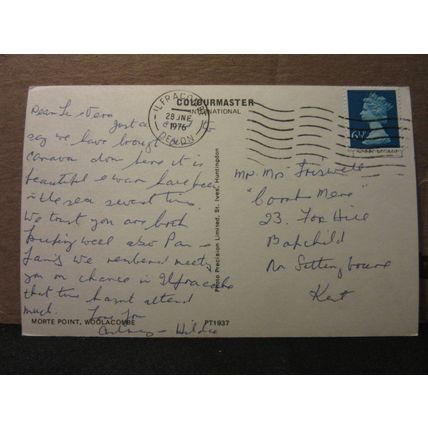 COLOURMASTER
INTERNATIONAL
ILFRACOMBE
28 JNE
1976
DEVON
6½P
Dear Vera
Just a to
say we have brought
caravan down here it is
beautiful & warm have been
in the sea several times.
We trust you are both
keeping well also Pam
we remembered meeting
you on chance in Ilfracombe
that time hasnt altered
much.
Mr Mrs
"
23. Fox Hill
Bapchild
Nr Sittingbourne
Kent
Photo Precision Limited, St. Ives, Huntingdon
MORTE POINT, WOOLACOMBE
PT1937